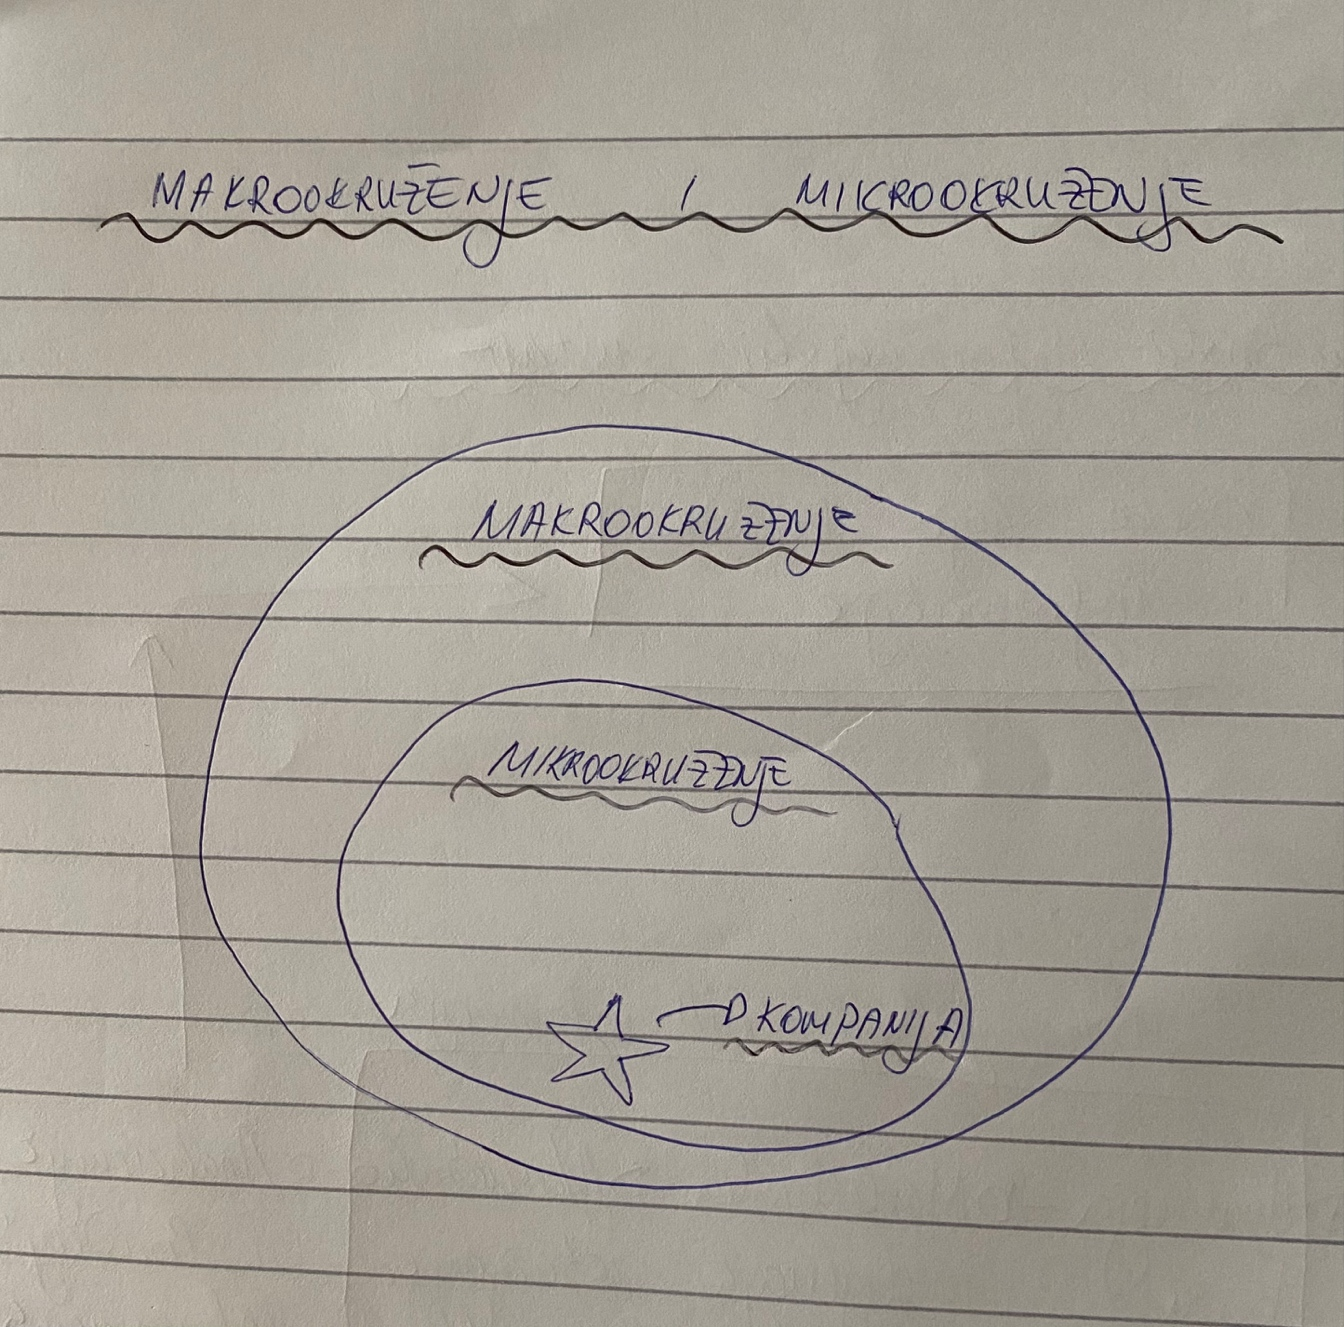 MAKROOKRUŽENJE / MIKROOKRUŽENJE
MAKROOKRUŽENJE
MIKROOKRUŽENJE
KOMPANIJA